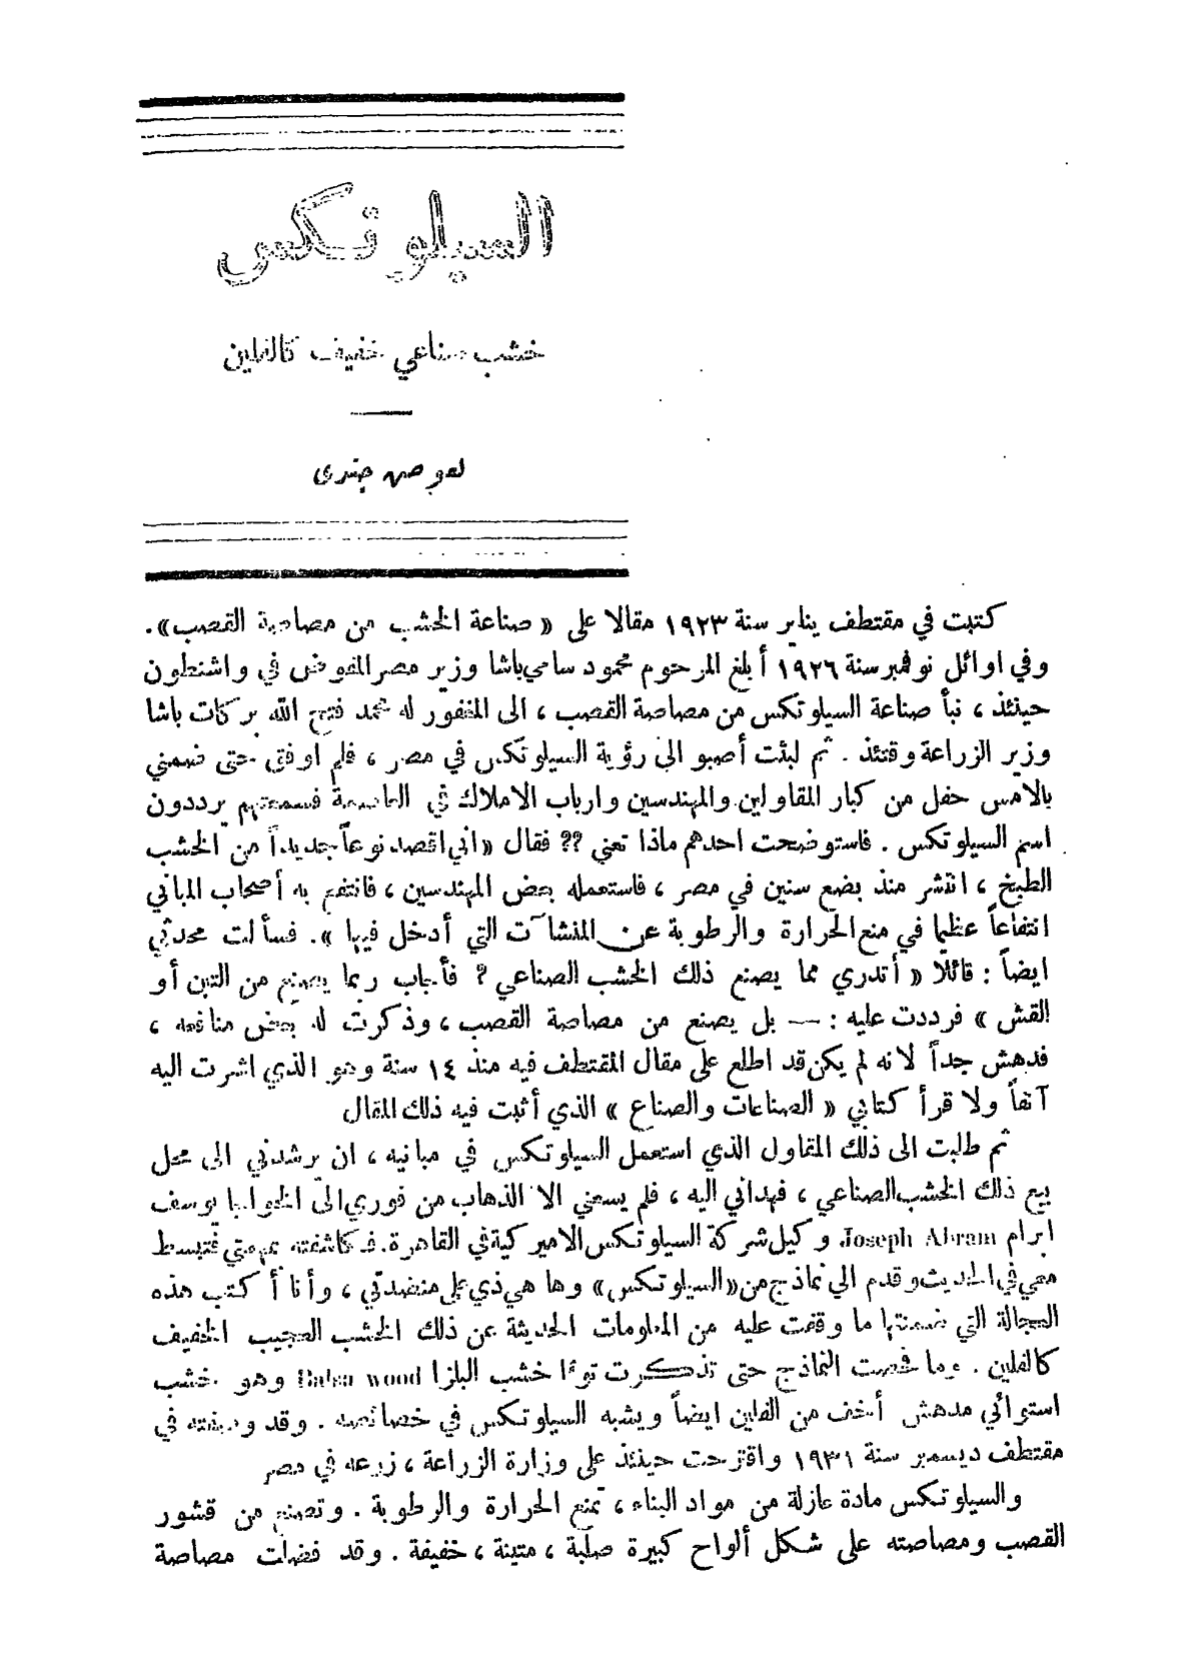 السيلوتكس
خشب صناعي خفيف كالفلين
لعوض جندى
كتبت في مقتطف يناير سنة ١٩٢٣ مقالا على « صناعة الخشب من مصاصة القصب».
وفي اوائل نوفمبر سنة ١٩٢٦ أبلغ المرحوم محمود سامي باشا وزير مصر المفوض في واشنطون
حينئذ ، نبأ صناعة السيلوتكس من مصاصة القصب ، الى المغفور له محمد فتح الله بركات باشا
وزير الزراعة وقتئذ . ثم لبثت أصبو الى رؤية السيلوتكس في مصر ، فلم اوفق حتى ضمني
بالامس حفل من كبار المقاولين والمهندسين وارباب الاملاك في العاصمة فسمعتهم يرددون
اسم السيلوتكس . فاستوضحت احدهم ماذا تعني ؟؟ فقال « اني اقصد نوعاً جديداً من الخشب
الطبخ ، انتشر منذ بضع سنين في مصر ، فاستعمله بعض المهندسين ، فانتفع به أصحاب المباني
انتفاعاً عظيما في منع الحرارة والرطوبة عن المنشآت التي أدخل فيها ». فسألت محدثي
ايضاً : قائلا « أتدري مما يصنع ذلك الخشب الصناعي ؟ فأجاب ربما يصنع من التبن أو
القش » فرددت عليه : — بل يصنع من مصاصة القصب ، وذكرت له بعض منافعه ،
فدهش جداً لانه لم يكن قد اطلع على مقال المقتطف فيه منذ ١٤ سنة وهو الذي اشرت اليه
آنفاً ولا قرأ كتابي « الصناعات والصناع » الذي أثبت فيه ذلك المقال
ثم طلبت الى ذلك المقاول الذي استعمل السيلوتكس في مبانيه ، ان يرشدني الى محل
بيع ذلك الخشب الصناعي ، فهداني اليه ، فلم يسعني الا الذهاب من فوري الى الخواجا يوسف
ابرام Joseph Abram وكيل شركة السيلوتكس الاميركية في القاهرة. فكاشفته بمهمتي فتبسط
معي في الحديث وقدم الي نماذج من «السيلوتكس» وها هي ذي على منضدتي ، وأنا أكتب هذه
العجالة التي ضمنتها ما وقفت عليه من المعلومات الحديثة عن ذلك الخشب العجيب الخفيف
كالفلين . وما فحصت النماذج حتى تذكرت توءا خشب البلزا Balsa wood وهو خشب
استوائي مدهش أخف من الفلين ايضاً ويشبه السيلوتكس في خصائصه . وقد وصفته في
مقتطف ديسمبر سنة ١٩٣١ واقترحت حينئذ على وزارة الزراعة ، زرعه في مصر
والسيلوتكس مادة عازلة من مواد البناء ، تمنع الحرارة والرطوبة . وتصنع من قشور
القصب ومصاصته على شكل ألواح كبيرة صلبة ، متينة ، خفيفة . وقد فضلت مصاصة